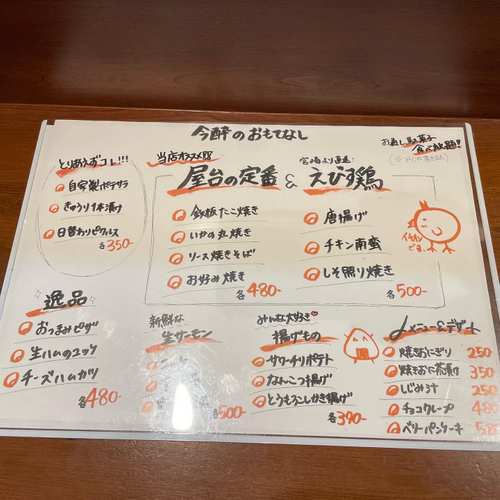 今酔のおもてなし
お通し駄菓子
食べ放題!
とりあえずコレ!!!
自家製ポテサラ
きゅうり1本漬け
日替わりピクルス
各350-
当店オススメ
屋台の定番 & えびす鶏
宮崎より直送!
鉄板たこ焼き
いかの丸焼き
ソース焼きそば
お好み焼き
各480-
唐揚げ
チキン南蛮
しそ照り焼き
各500-
イチオシです。
逸品
おつまみピザ
生ハムのユッケ
チーズハムカツ
各480-
新鮮な
生サーモン
各500-
みんな大好き
揚げもの
サワーチリポテト
なんこつ揚げ
とうもろこしかき揚げ
各390-
〆メニュー&デザート
焼きおにぎり 250
焼きおに茶漬け 350
しじみ汁 250
チョコクレープ
ベリーパンケーキ